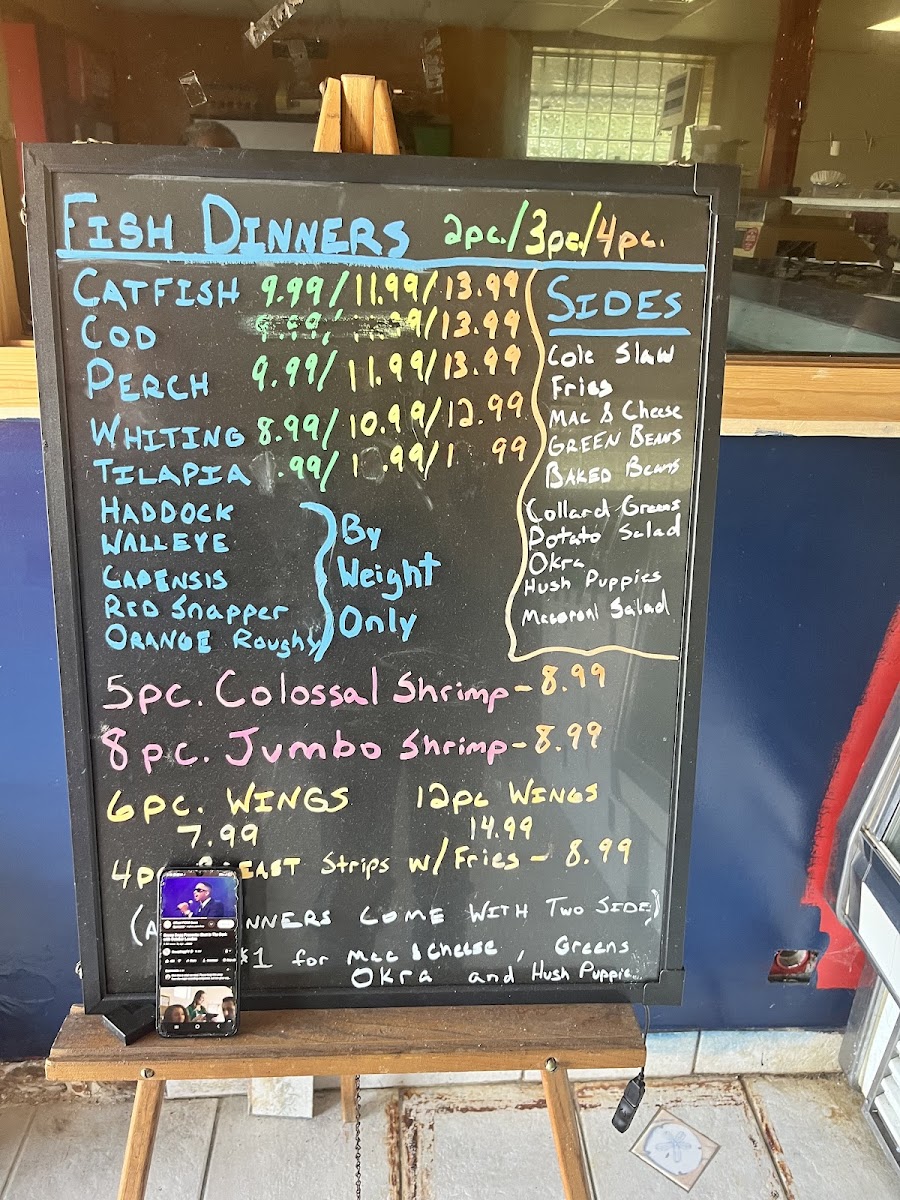 FISH DINNERS 2pc./3pc./4pc.
CATFISH 9.99/11.99/13.99
COD 9/13.99
PERCH 9.99/11.99/13.99
WHITING 8.99/10.99/12.99
TILAPIA .99/1 .99/1 99
HADDOCK
WALLEYE
CAPENSIS
RED Snapper
ORANGE Roughy
By
Weight
Only
SIDES
Cole Slaw
Fries
MAC & Cheese
GREEN BEANS
BAKED Beans
Collard Greens
Potato Salad
Okra
Hush Puppies
Macaroni Salad
5pc. Colossal Shrimp - 8.99
8pc. Jumbo Shrimp - 8.99
6pc. WINGS 12pc WINGS
7.99 14.99
4p EAST Strips w/Fries - 8.99
(A NNERS COME WITH TWO SIDE)
$1 for Mac & Cheese, Greens
OKRA and Hush Puppie